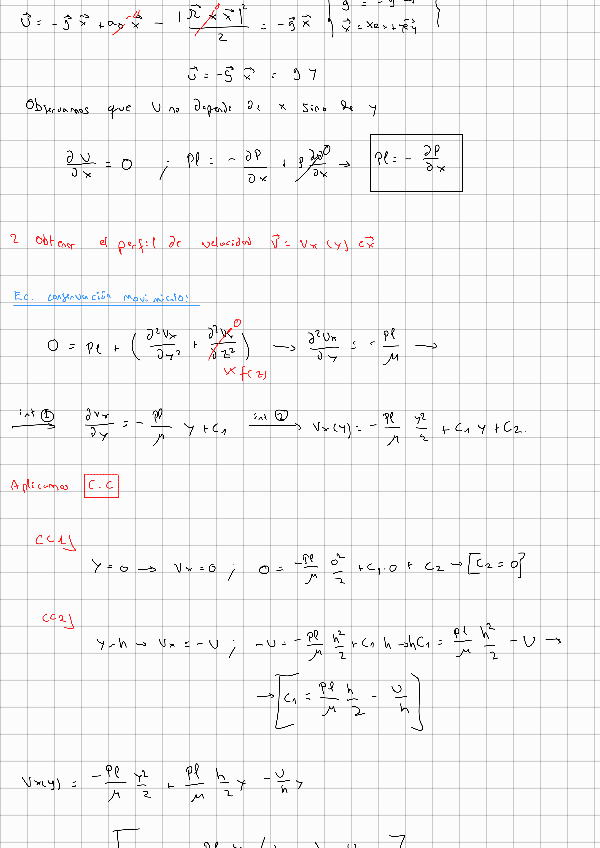 U = -g⃗ x⃗ + a₀ x⃗ - |Ω⃗ x x⃗|²/2 = -g⃗ x⃗
x⃗ = xex + yey
U = -g⃗ x⃗ = g y
Observamos que U no depende de x sino de y
∂U/∂x = 0 ; Pl = - ∂P/∂x + ρ ∂U/∂x 0 → Pl = - ∂P/∂x
2 Obtener el perfil de velocidad V⃗ = Vx (y) ex⃗
Ec. conservación movimiento:
0 = Pl + (∂²Vx/∂y² + ∂²Vx/∂z² 0) → ∂²Vx/∂y = - Pl/μ →
x f(z)
int ① ∂Vx/∂y = - Pl/μ y + C₁ int ② → Vx(y) = - Pl/μ y²/2 + C₁ y + C₂.
Aplicamos C.C
CC1]
y = 0 → Vx = 0 ; 0 = -Pl/μ 0²/2 + C₁·0 + C₂ → [C₂ = 0]
CC2]
y = h → Vx = -U ; -U = - Pl/μ h²/2 + C₁ h → hC₁ = Pl/μ h²/2 - U →
→ [C₁ = Pl/μ h/2 - U/h]
Vx(y) = -Pl/μ y²/2 + Pl/μ h/2 y - U/h y